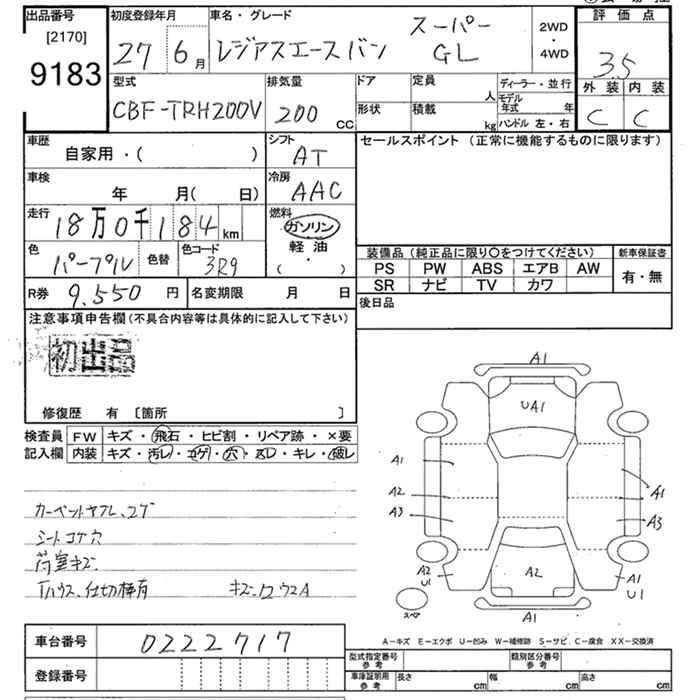 出品番号 初度登録年月 車名・グレード 評価点
[2170] スーパー 2WD
9183 27 6月 レジアスエースバン GL 4WD 3.5
型式 排気量 ドア 定員 人 ディーラー・並行 外装 内装
CBF-TRH200V 200 cc 形状 積載 kg モデル年式 年 C C
ハンドル 左・右
車歴 シフト セールスポイント (正常に機能するものに限ります)
自家用・( ) AT
車検 冷房
年 月( 日) AAC
走行 燃料
18万0千184km ガソリン
色 色替 色コード 軽油 装備品 (純正品に限り○をつけてください) 新車保証書
パープル 3R9 ( ・ ) PS PW ABS エアB AW 有・無
SR ナビ TV カワ
R券 9.550 円 名変期限 月 日 後日品
注意事項申告欄(不具合内容等は具体的に記入して下さい)
初出品
修復歴 有 〔箇所 〕
検査員 FW キズ・飛石・ヒビ割・リペア跡・×要
記入欄 内装 キズ・汚レ・コゲ・穴・スレ・キレ・破レ
カーペットヤブレ、コゲ
シートコゲ穴
荷室キズ
Tハウス、仕切棒有
A1
UA1
A1
A2 A1
A3 A3
A2 U1 A2 A1 U1
スペア A1
A-キズ E-エクボ U-凹み W-補修跡 S-サビ C-腐食 XX-交換済
車台番号 0222717
型式指定番号 参考 類別区分番号 参考
登録番号 車庫証明用 参考 長さ cm 幅 cm 高さ cm